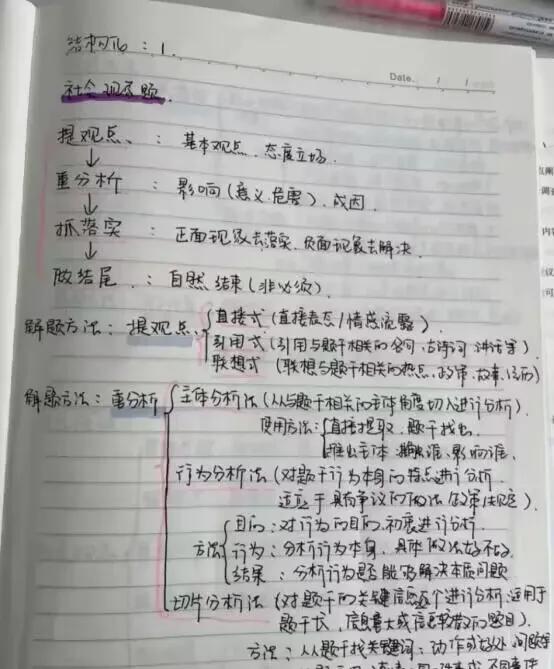 结构化：1.
Date. / /
社会现象题.
提观点、：基本观点、态度立场.
重分析：影响(意义.危害)、成因.
抓落实：正面现象去落实、负面现象去解决.
做结尾.：自然结束(非必须).
解题方法：提观点、直接式(直接表态/情感流露).
引用式(引用与题干相关的名句,古诗词,讲话等)
联想式(联想与题干相关的热点,政策,故事,
解题方法：重分析 主体分析法(从与题干相关的主体角度切入进行分析).
使用方法：直接提取、题干找出.
推出主体：谁,影响谁.
行为分析法(对题干行为本身的特点进行分析.
适应于具有争议的做法(政策/规定).
方法 目的：对行为的目的,初衷进行分析.
行为：分析行为本身,具体做法好不好.
结果：分析行为是否能够解决本质问题
切片分析法(对题干的关键信息逐个进行分析,适用于
题干长,信息量大或信息较散的题目).
方法：从题干找关键词：动作或